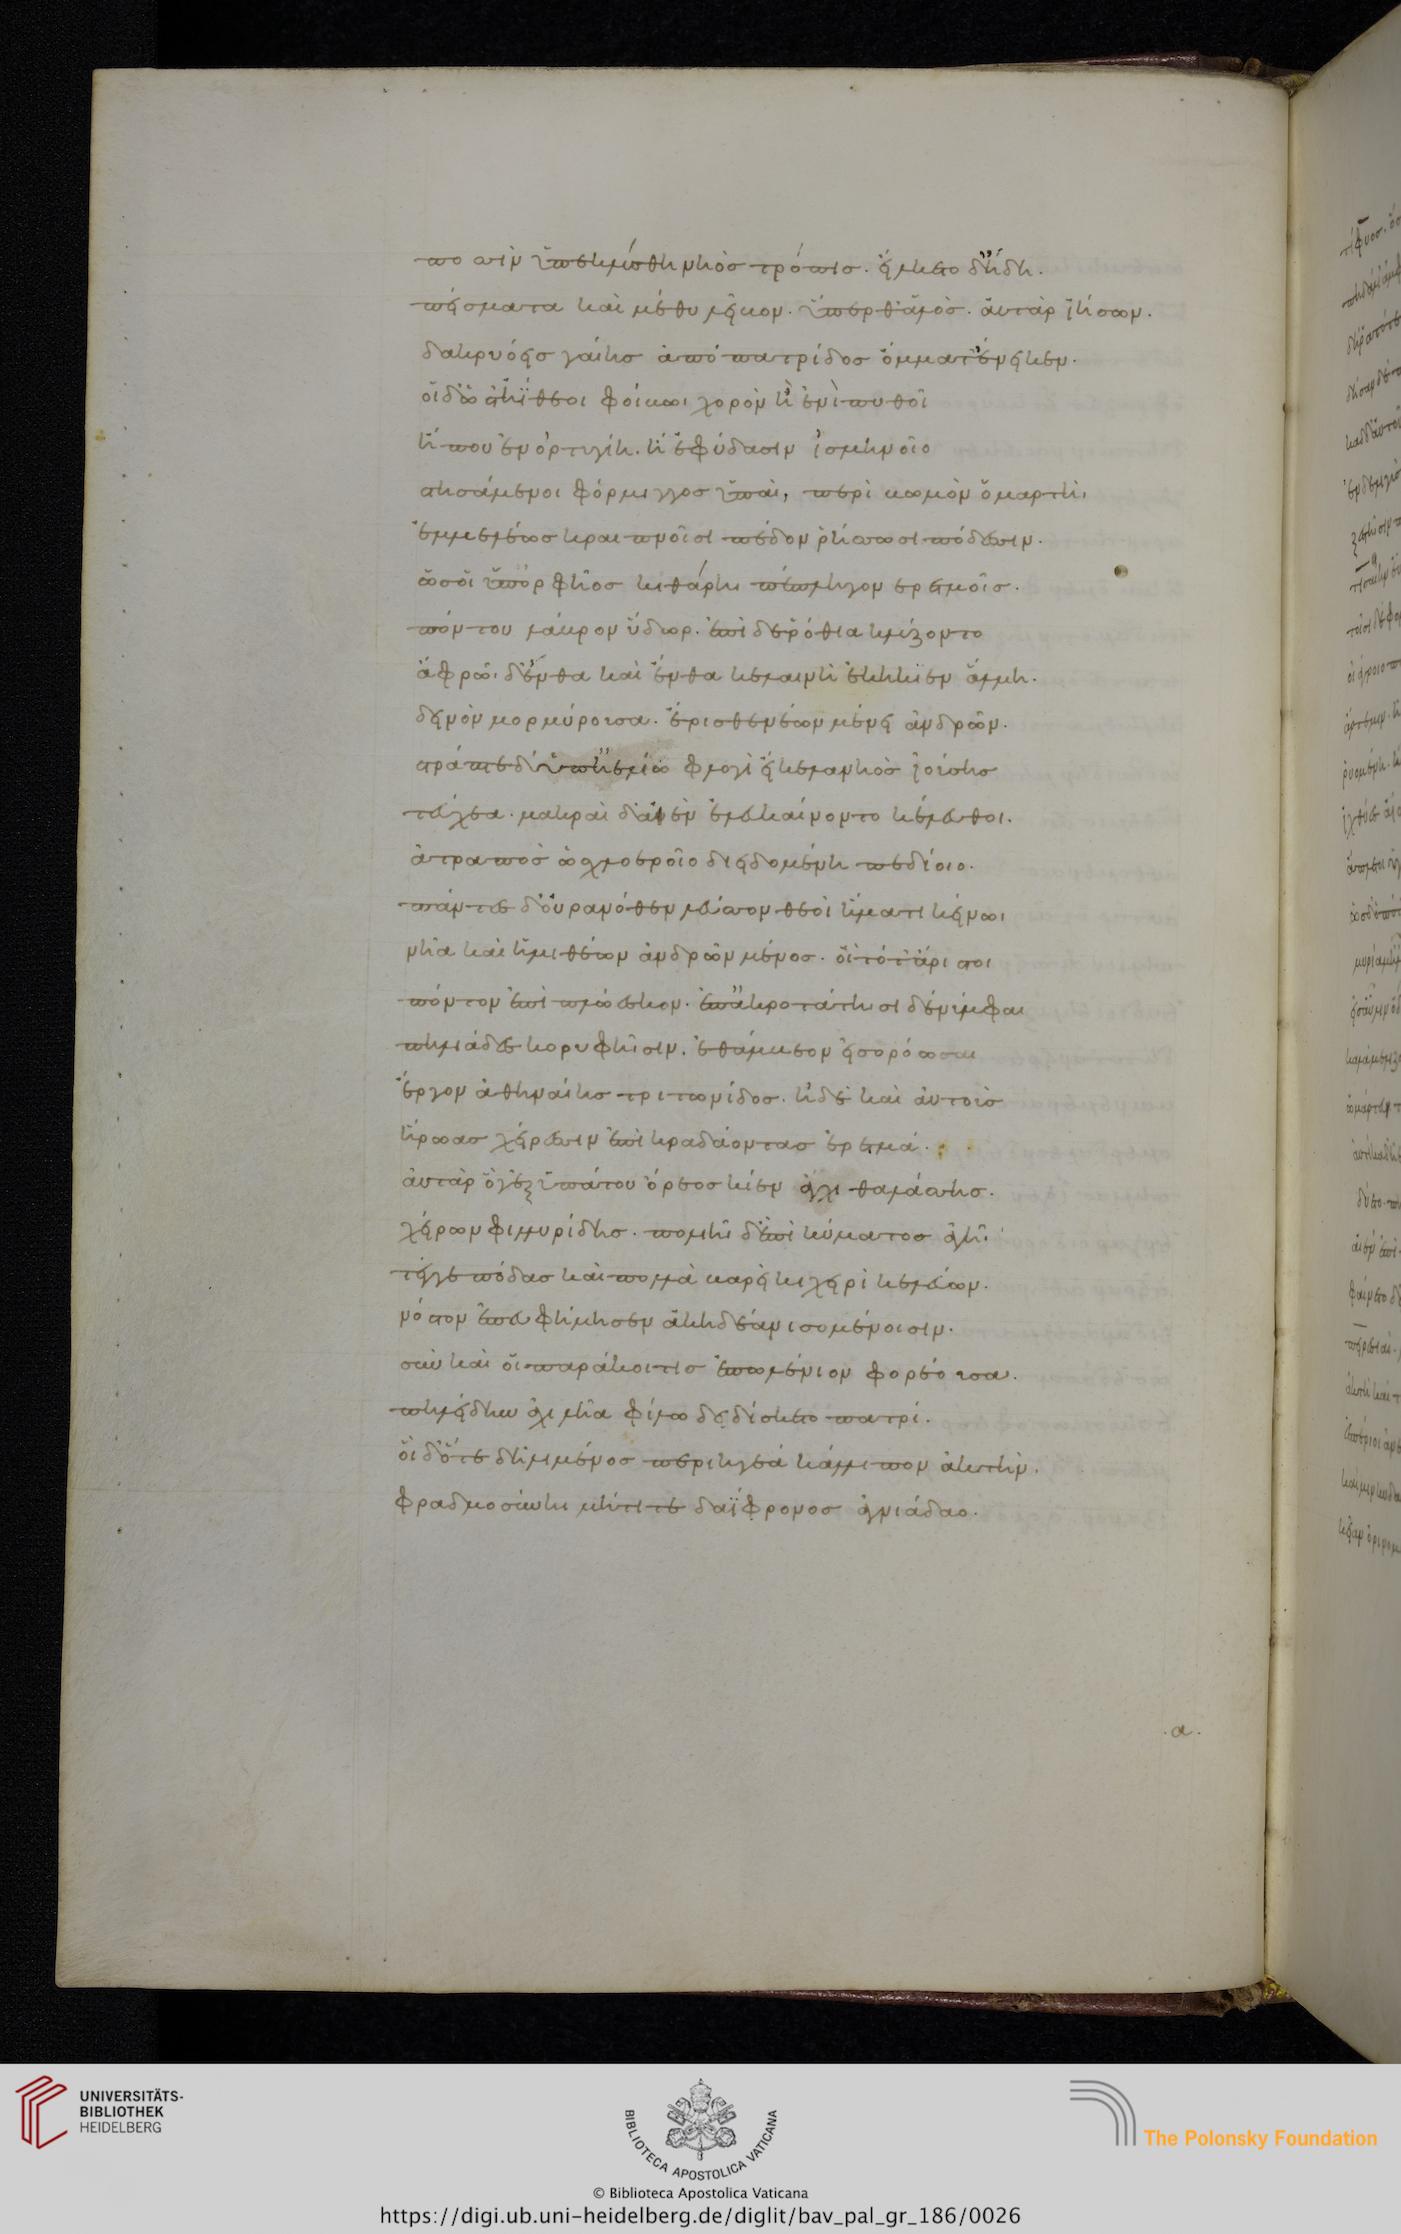 ποσσὶν ὑπεκλίνθη νηὸς τρόπις. εἵλκετο δ' ἤδη.
πείσματα καὶ μέθυ λεῖβον. ὕπερθ' ἁλός. αὐτὰρ ἰήσων.
δακρυόεις γαίης ἀπὸ πατρίδος ὄμματ' ἔνεικεν.
οἱ δ' ὥστ' ἠΐθεοι φοίβωι χορὸν ἢ ἐνὶ πυθοῖ
ἤ που ἐν ὀρτυγίη. ἢ ἐφ' ὕδασιν ἰσμηνοῖο
στησάμενοι φόρμιγγος ὑπαὶ, περὶ βωμὸν ὁμαρτῆι
ἐμμελέως κραιπνοῖσι πέδον ῥήσσωσι πόδεσσιν.
ὣς οἱ ὑπ' ὀρφῆος κιθάρηι πέπληγον ἐρετμοῖς.
πόντου λάβρον ὕδωρ. ἐπὶ δὲ ῥόθια κλύζοντο
ἀφρῶι δ' ἔνθα καὶ ἔνθα κελαινὴ ἐκήκιεν ἅλμη.
δεινὸν μορμύρουσα. ἐρισθενέων μένει ἀνδρῶν.
στράπτε δ' ὑπ' ἠελίω φλογὶ εἴκελα νηὸς ἰούσης
τεύχεα. μακραὶ δ' αἰὲν ἐλευκαίνοντο κέλευθοι.
ἀτραπὸς ὣς χλοεροῖο διειδομένη πεδίοιο.
πάντες δ' οὐρανόθεν λεῦσσον θεοὶ ἤματι κείνωι
νῆα καὶ ἡμιθέων ἀνδρῶν μένος. οἳ τότ' ἄριστοι
πόντον ἐπιπλώεσκον. ἐπ' ἀκροτάτηισι δὲ νύμφαι
πηλιάδες κορυφῆισιν. ἐθάμβεον εἰσορόωσαι
ἔργον ἀθηναίης τριτωνίδος. ἠδὲ καὶ αὐτοὺς
ἥρωας χείρεσσιν ἐπικραδάοντας ἐρετμά.
αὐτὰρ ὅγ' ἐξ ὑπάτου ὄρεος κίεν ἄγχι θαλάσσης.
χείρων φιλλυρίδης. πολιῆι δ' ἐπὶ κύματος ἀγῆι
τέγγε πόδας καὶ πολλὰ βαρείηι χειρὶ κελεύων.
νόστον ἐπευφήμησεν ἀκηδέα νισομένοισιν.
σὺν καὶ οἱ παράκοιτις ἐπωλένιον φορέουσα.
πηλείδην ἀχιλῆα φίλω δειδίσκετο πατρί.
οἱ δ' ὅτε δὴ λιμένος περιηγέα κάλλιπον ἀκτήν.
φραδμοσύνηι μήτι τε δαΐφρονος ἁγνιάδαο.
.α.
UNIVERSITÄTS-
BIBLIOTHEK
HEIDELBERG
BIBLIOTECA APOSTOLICA VATICANA
The Polonsky Foundation
© Biblioteca Apostolica Vaticana
https://digi.ub.uni-heidelberg.de/diglit/bav_pal_gr_186/0026